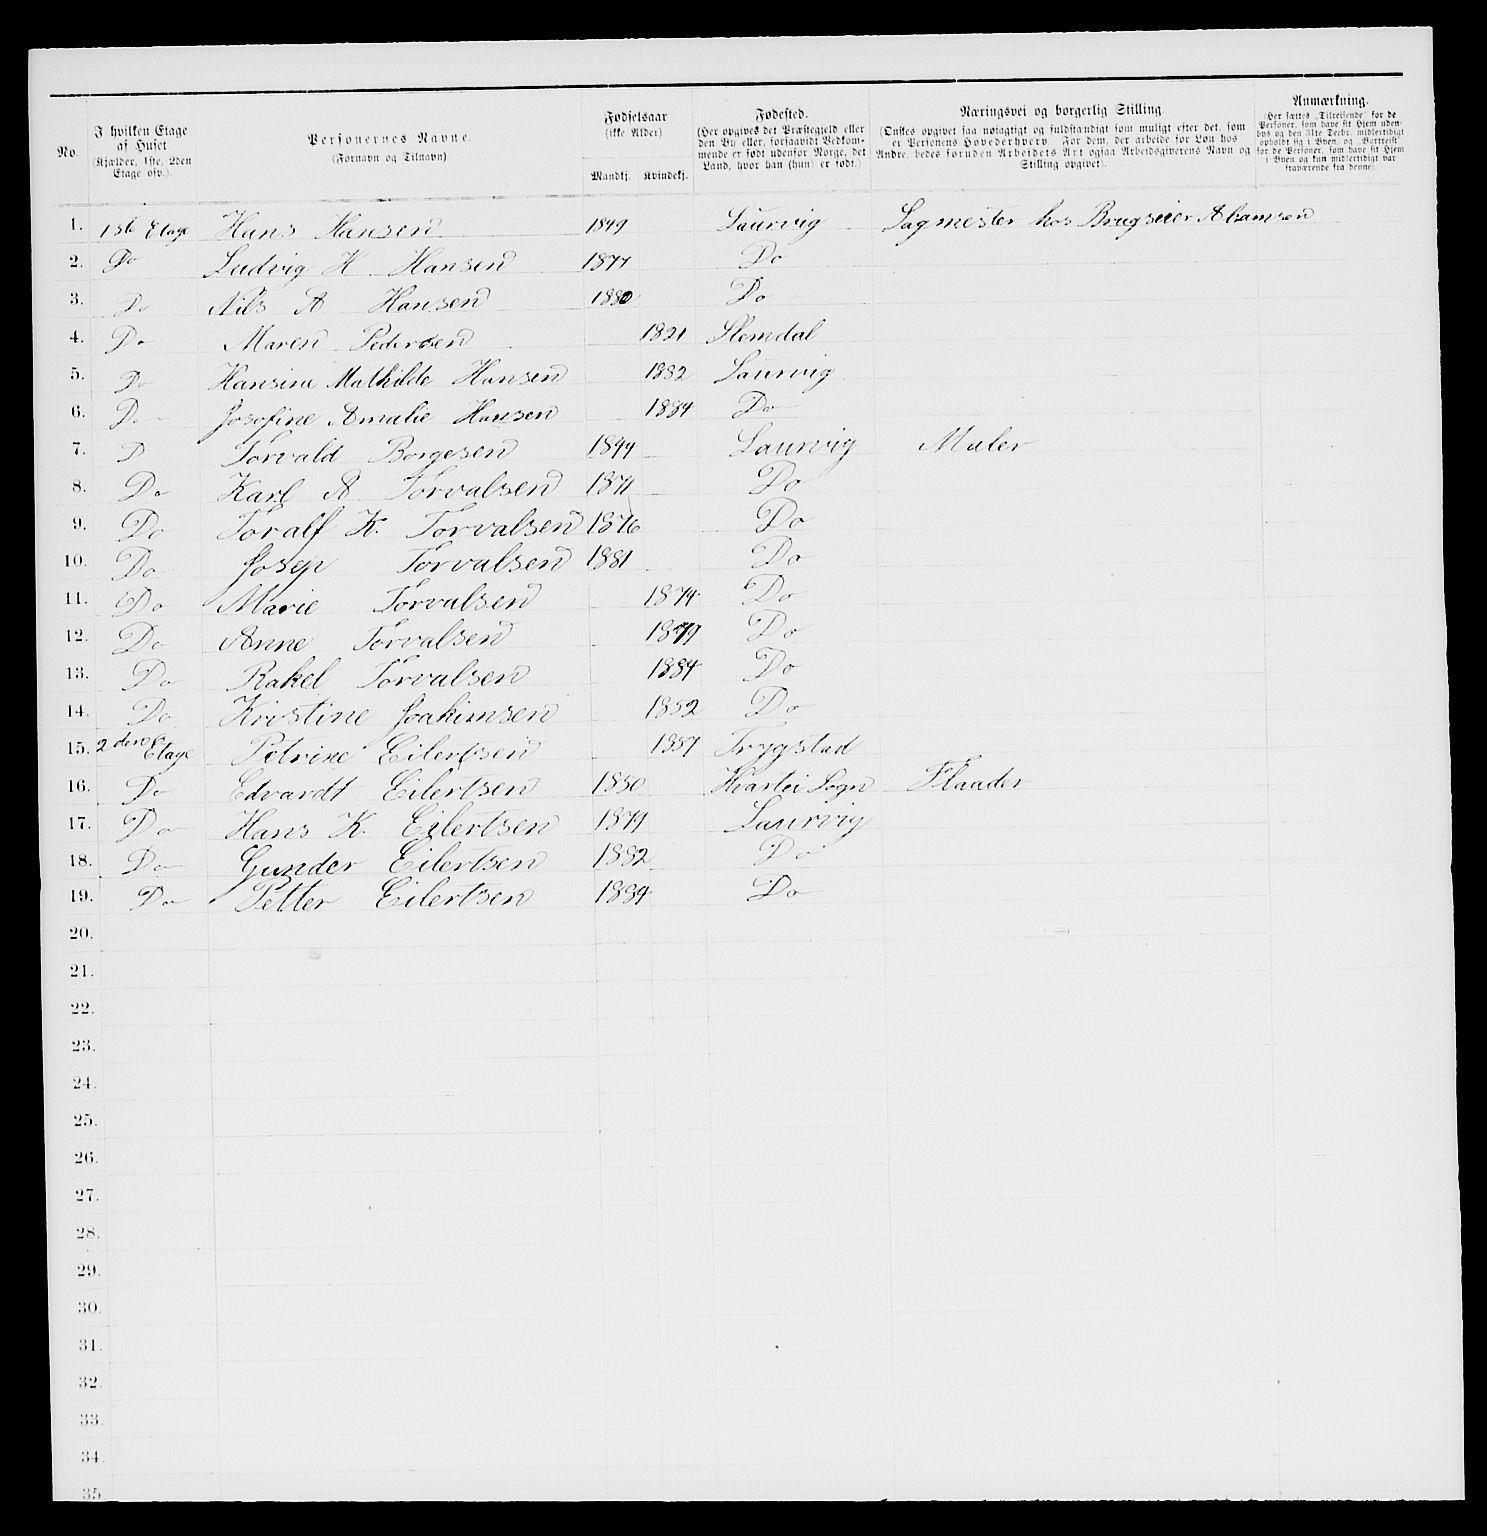 No.
I hvilken Etage af Huset (Kjælder, 1ste, 2den Etage osv.).
Personernes Navne. (Fornavn og Tilnavn)
Fødselsaar (ikke Alder) Mandkj. Kvindekj.
Fødested. (Her opgives det Præstegjeld eller den By eller, forsaavidt Vedkommende er født udenfor Norge, det Land, hvor han (hun) er født.)
Næringsvei og borgerlig Stilling. (Ønskes opgivet saa nøiagtigt og fuldstændigt som muligt efter det, som er Personens Hovederhverv. For dem, der arbeide for Løn hos Andre, bedes foruden Arbeidets Art ogsaa Arbeidsgiverens Navn og Stilling opgivet).
Anmærkning. (Her sættes „Tilreisende" for de Personer, som have sit Hjem udenbys og den 31te Decbr. midlertidigt opholdt sig i Byen, og „Bortreist" for de Personer, som have sit Hjem i Byen og kun midlertidigt var fraværende fra denne).
1. 1ste Etage Hans Hansen 1849 Laurvig Sagmester hos Brugseier Abamson
2. Do Ludvig H Hansen 1877 Do
3. Do Nils A Hansen 1880 Do
4. Do Maren Pedersen 1821 Slemdal
5. Do Hansine Mathilde Hansen 1882 Laurvig
6. Do Josefine Amalie Hansen 1884 Do
7. D Torvald Borgesen 1844 Laurvig Maler
8. Do Karl A Torvalsen 1871 Do
9. Do Toralf K. Torvalsen 1876 Do
10. Do Josep Torvalsen 1881 Do
11. Do Marie Torvalsen 1874 Do
12. Do Anne Torvalsen 1879 Do
13. Do Rakel Torvalsen 1884 Do
14. Do Kristine Joakimsen 1852 Do
15. 2den Etage Petrine Eilertsen 1857 Trygstad
16. Do Edvardt Eilertsen 1850 Sogn Flaader
17. Do Hans K. Eilertsen 1879 Laurvig
18. Do Gunder Eilertsen 1882 Do
19. Do Petter Eilertsen 1884 Do
20.
21.
22.
23.
24.
25.
26.
27.
28.
29.
30.
31.
32.
33.
34.
35